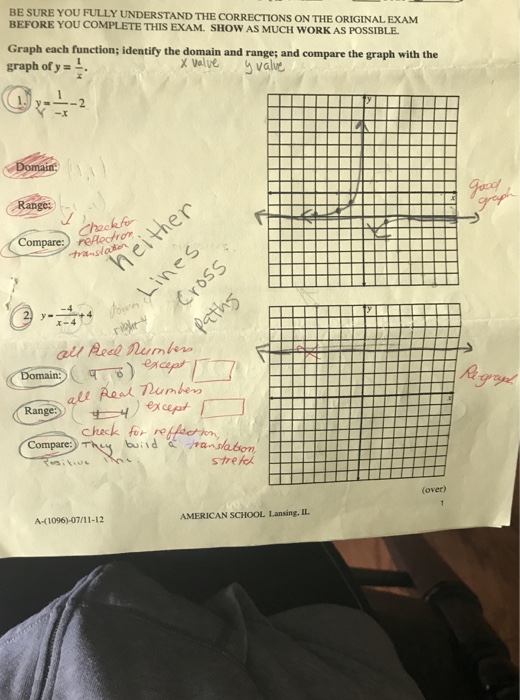 BE SURE YOU FULLY UNDERSTAND THE CORRECTIONS ON THE ORIGINAL EXAM
BEFORE YOU COMPLETE THIS EXAM. SHOW AS MUCH WORK AS POSSIBLE.
Graph each function; identify the domain and range; and compare the graph with the
graph of y = 1/x.
x value y value
1. y = 1/-x - 2
y
x
good
graph
Domain:
Range:
Compare:
Check for
reflection
translation
neither
Lines
Cross
paths
2. y = -4/x-4 + 4
down
right
y
all Real Numbers
Domain: except
all Real Numbers
Range: except
Re-graph
check for reflection,
Compare: They build a translation,
Positive line. stretch
(over)
1
A-(1096)-07/11-12
AMERICAN SCHOOL Lansing, IL